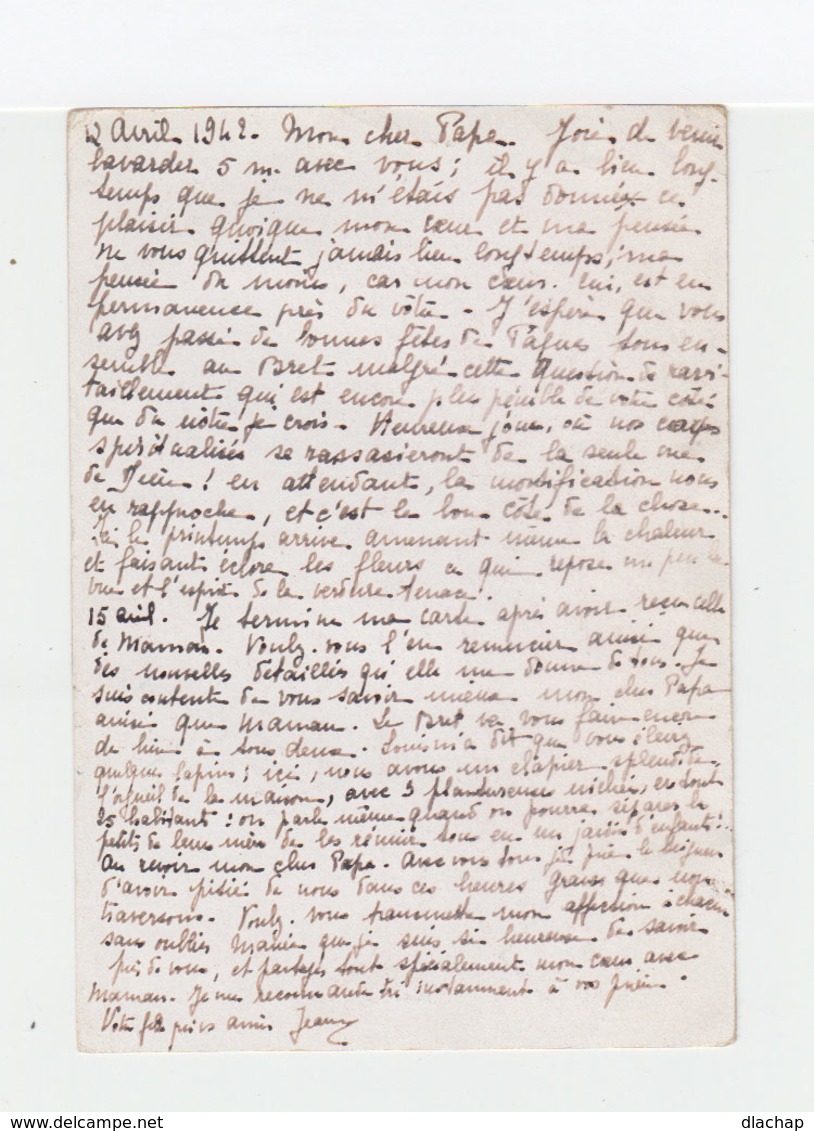 12 Avril 1942. Mon cher Papa. Joie de venir
bavarder 5 m. avec vous ; il y a bien long-
temps que je ne m'étais pas donnée ce
plaisir quoique mon cœur et ma pensée
ne vous quittent jamais bien longtemps ; ma
pensée du moins, car mon cœur lui, est en
permanence près du vôtre. J'espère que vous
avez passé de bonnes fêtes de Pâques tous en-
semble au Bret malgré cette question de ravi-
taillement qui est encore plus pénible de votre côté
que du nôtre je crois. Heureux jour, où nos corps
spiritualisés se rassasieront de la seule vue
de Dieu ! en attendant, la mortification nous
en rapproche, et c'est le bon côté de la chose...
Ici le printemps arrive amenant même la chaleur
et faisant éclore les fleurs ce qui repose un peu la
vue et l'esprit de la verdure tenace.
15 avril. Je termine ma carte après avoir reçu celle
de Maman. Voulez-vous l'en remercier ainsi que
des nouvelles détaillées qu'elle me donne de tous. Je
suis contente de vous savoir mieux mon cher Papa
ainsi que Maman. Le Bret va vous faire encore
du bien à tous deux. dit que vous élevez
quelques lapins ; ici, nous avons un clapier splendide
l'orgueil de la maison, avec 3 plantureuses nichées, en tout
25 habitants ! on parle même quand on pourra séparer les
petits de leur mère de les réunir tous en un jardin d'enfants !...
Au revoir mon cher Papa. Avec vous tous je prie le Seigneur
d'avoir pitié de nous dans ces heures graves que nous
traversons. Voulez-vous transmettre mon affection à chacun
sans oublier que je suis si heureuse de savoir
près de vous, et partagez tout spécialement mon cœur avec
Maman. Je me recommande très instamment à vos prières.
Votre fille Jeanne
delcampe.net
dlachap